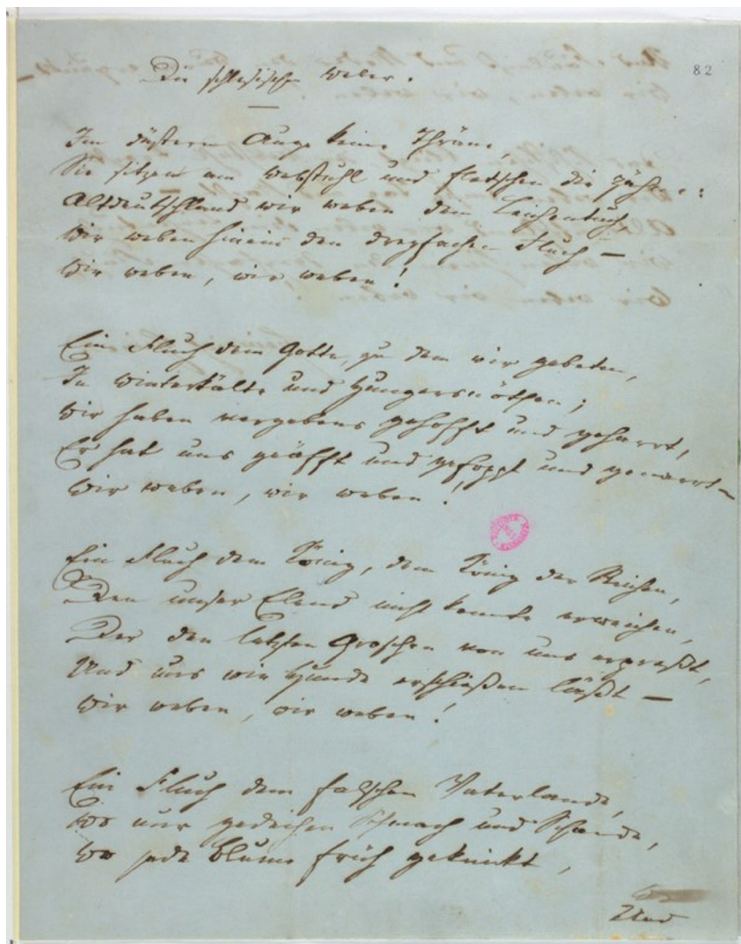 82
Die schlesischen Weber.
Im düstern Auge keine Thräne,
Sie sitzen am Webstuhl und fletschen die Zähne:
Altdeutschland wir weben dein Leichentuch,
Wir weben hinein den dreyfachen Fluch –
Wir weben, wir weben!
Ein Fluch dem Gotte, zu dem wir gebeten,
In Winterkälte und Hungersnöthen;
Wir haben vergebens gehofft und geharrt,
Er hat uns geäfft und gefoppt und genarrt –
Wir weben, wir weben!
Ein Fluch dem König, dem König der Reichen,
Den unser Elend nicht konnte erweichen,
Der den letzten Groschen von uns erpreßt,
Und uns wie Hunde erschießen läßt –
Wir weben, wir weben!
Ein Fluch dem falschen Vaterlande,
Wo nur gedeihen Schmach und Schande,
Wo jede Blume früh geknickt,
Und